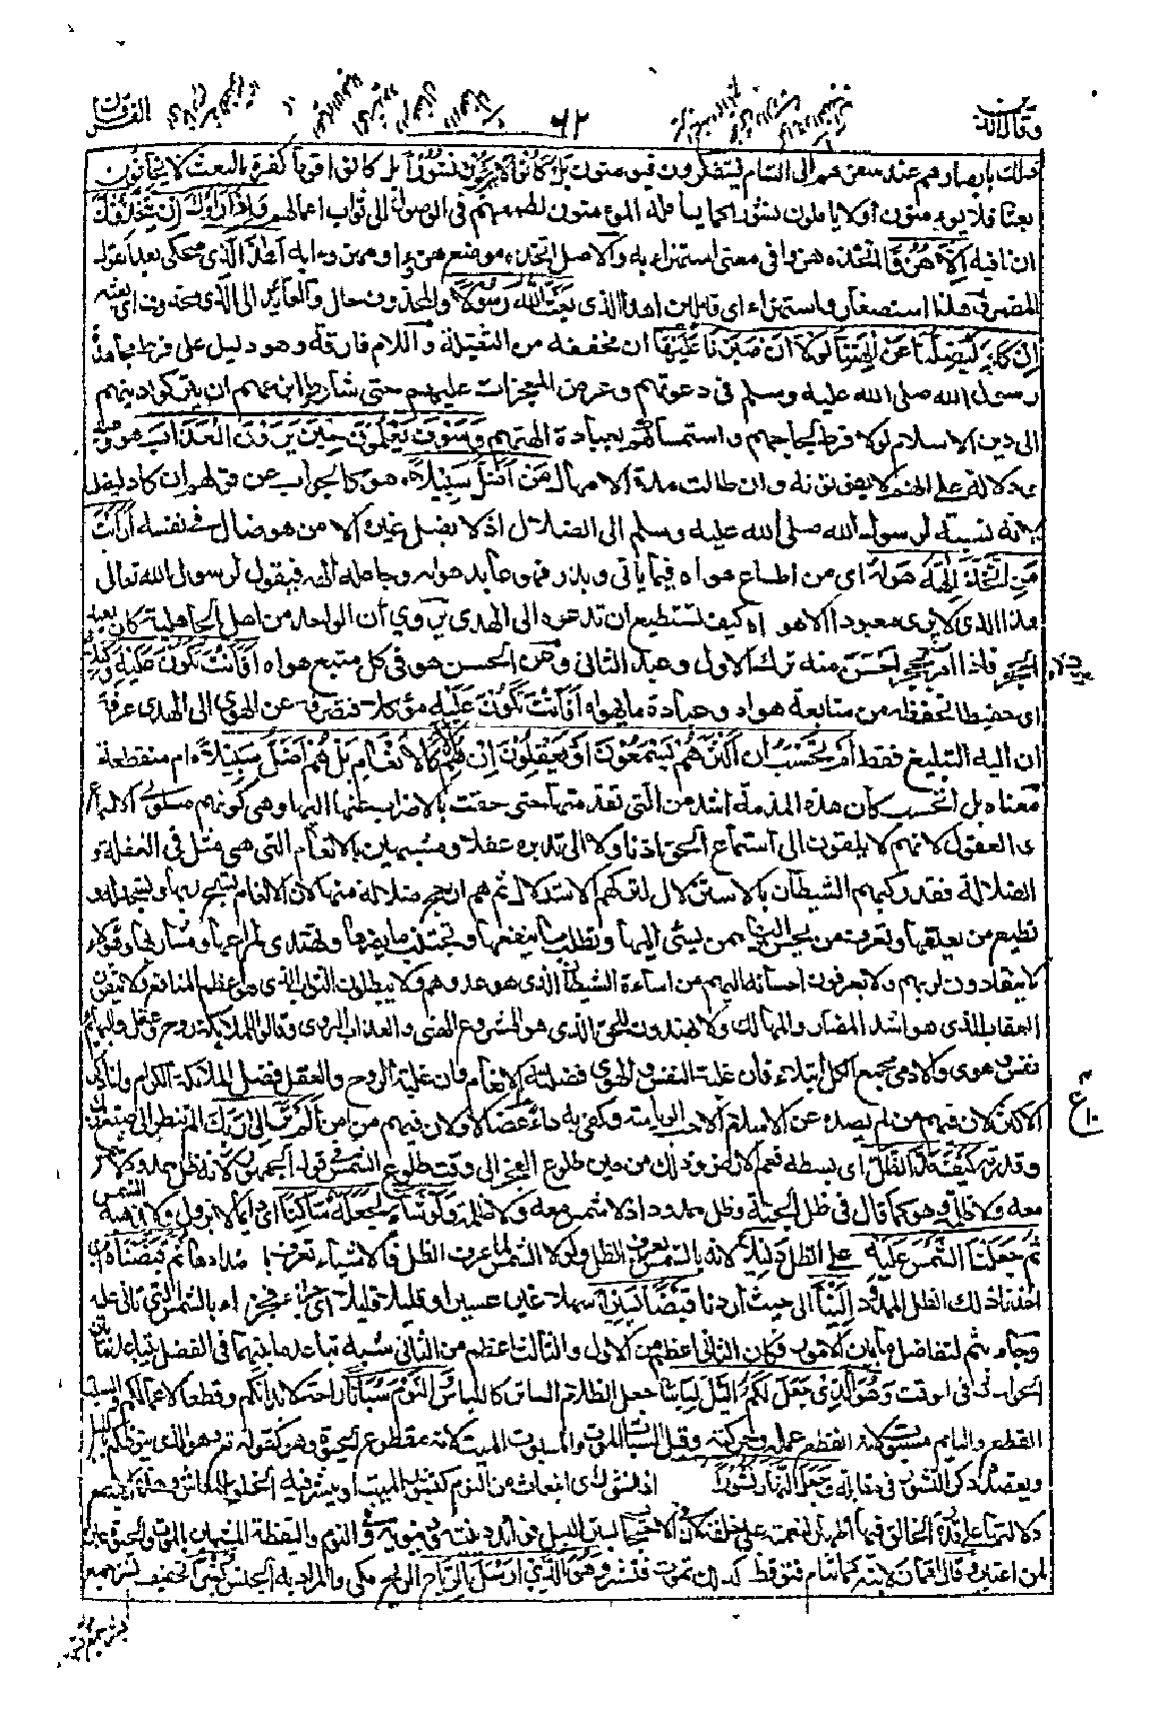 وقال الذين
٦٢
الفرقان
بل كانوا لا يرجون نشورا بل كانوا قوما كفرة بالبعث لا يخافون
بعثا فلا يؤمنون أو لا يأملون نشورا كما يأمله المؤمنون لطمعهم في الوصول الى ثواب اعمالهم وإذا رأوك إن يتخذونك
ان نافية إلا هزوا اتخذه هزوا في معنى استهزاء به والاصل اتخذه موضع هزء او مهزوءا به أهذا الذي محكي بعد القول
المضمر وهذا استصغار واستهزاء اي قائلين اهذا الذي بعث الله رسولا والمحذوف حال والعائد الى الذي محذوف اي بعثه
إن كاد ليضلنا عن آلهتنا لولا أن صبرنا عليها ان مخففة من الثقيلة واللام فارقة وهو دليل على فرط مجاهدة
رسول الله صلى الله عليه وسلم في دعوتهم وعرض المعجزات عليهم حتى شارفوا بزعمهم ان يتركوا دينهم
الى دين الاسلام لولا فرط لجاجهم واستمساكهم بعبادة الهتهم وسوف يعلمون حين يرون العذاب هو وعيد
ودلالة على انهم لا يفوتونه وان طالت مدة الامهال من أضل سبيلا هو كالجواب عن قولهم ان كاد ليضلنا
لانه نسبة لرسول الله صلى الله عليه وسلم الى الضلال اذ لا يضل غيره الا من هو ضال في نفسه أرأيت
من اتخذ إلهه هواه اي من اطاع هواه فيما يأتي ويذر فهو عابد هواه وجاعله الهه فيقول لرسول الله تعالى
هذا الذي لا يرى معبودا الا هواه كيف تستطيع ان تدعوه الى الهدى يروي أن الواحد من اهل الجاهلية كان يعبد
الحجر فاذا مر بحجر احسن منه ترك الاول وعبد الثاني وعن الحسن هو في كل متبع هواه أفأنت تكون عليه وكيلا
اي حفيظا تحفظه من متابعة هواه وعبادة ما يهواه أفأنت تكون عليه موكلا فتصرفه عن الهوى الى الهدى عرفه
ان اليه التبليغ فقط أم تحسب أن أكثرهم يسمعون أو يعقلون إن هم إلا كالأنعام بل هم أضل سبيلا ام منقطعة
معناه بل اتحسب كان هذه المذمة اشد من التي تقدمتها حتى حقت بالاضراب عنها اليها وهي كونهم مسلوبي الاسماع
والعقول لانهم لا يلقون الى استماع الحق اذنا ولا الى تدبره عقلا ومشبهين بالانعام التي هي مثل في الغفلة و
الضلالة فقد ركبهم الشيطان بالاستزلال لتركهم الاستدلال ثم هم ارجح ضلالة منها لان الانعام تسبح ربها وتسجد له و
تطيع من يعلفها وتعرف من يحسن اليها ممن يسئ اليها وتطلب ما ينفعها وتجتنب ما يضرها وتهتدي لمراعيها ومشاربها وهؤلاء
لا ينقادون لربهم ولا يعرفون احسانه اليهم من اساءة الشيطان الذي هو عدوهم ولا يطلبون الثواب الذي هو اعظم المنافع ولا يتقون
العقاب الذي هو اشد المضار والمهالك ولا يهتدون للحق الذي هو المشرع الهني والعذب الروي وقالوا الملائكة روح وعقل والبهائم
نفس وهوى والادمي مجمع الكل ابتلاء فان غلبته النفس والهوى فضلته الانعام وان غلبته الروح والعقل فضل الملائكة الكرام وانما ذكر
الاكثر لان فيهم من لم يصده عن الاسلام الا حب الرياسة وكفى به داء عضالا ولان فيهم من امن ألم تر إلى ربك الم تنظر الى صنع ربك
وقدرته كيف مد الظل اي بسطه فعم الارض وذلك من حين طلوع الفجر الى وقت طلوع الشمس في قول الجمهور لانه ظل ممدود لا شمس
معه ولا ظلمة وهو كما قال في ظل الجنة وظل ممدود اذ لا شمس معه ولا ظلمة ولو شاء لجعله ساكنا اي دائما لا يزول ولا تذهبه الشمس
ثم جعلنا الشمس عليه على الظل دليلا لانه بالشمس يعرف الظل ولولا الشمس لما عرف الظل فالاشياء تعرف باضدادها ثم قبضناه اي
اخذنا ذلك الظل الممدود إلينا الى حيث اردنا قبضا يسيرا سهلا غير عسير او قليلا قليلا اي جزء فجزء بالشمس التي تأتي عليه
وجاء بثم لتفاضل ما بين الامور فكان الثاني اعظم من الاول والثالث اعظم من الثاني شبه تباعد ما بينها في الفضل بتباعد ما بين
الحوادث في الوقت وهو الذي جعل لكم الليل لباسا جعل الظلام الساتر كاللباس والنوم سباتا راحة لابدانكم وقطعا لاعمالكم والسبت
القطع والنائم مسبوت لانه انقطع عمله وحركته وقيل السبات الموت والمسبوت الميت لانه مقطوع الحيوة وهو كقوله تعالى وهو الذي يتوفاكم بالليل
ويعضده ذكر النشور في مقابلته وجعل النهار نشورا اذ النشور اي انبعاث من النوم كنشور الميت او ينشر فيه الخلق للمعاش
دلالتها على قدرة الخالق فيها اظهار لنعمته على خلقه لان في الاحتجاب بستر الليل فوائد دينية ودنيوية وفي النوم واليقظة المشبهين بالموت والحيوة عبرة
لمن اعتبر وقال لقمان لابنه كما تنام فتوقظ كذلك تموت فتنشر وهو الذي أرسل الرياح الريح مكي والمراد به الجنس نشرا تخفيف نشر جمع